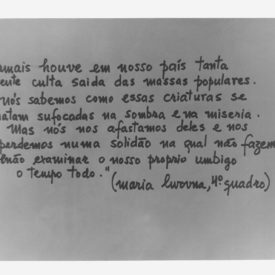 mais houve em nosso país tanta
ente culta saida das massas populares.
nós sabemos como essas criaturas se
atam sufocadas na sombra e na miseria.
Mas nós nos afastamos deles e nos
perdemos numa solidão na qual não fazem
enão examinar o nosso proprio umbigo
o tempo todo."
(maria lwovna, 4º quadro)